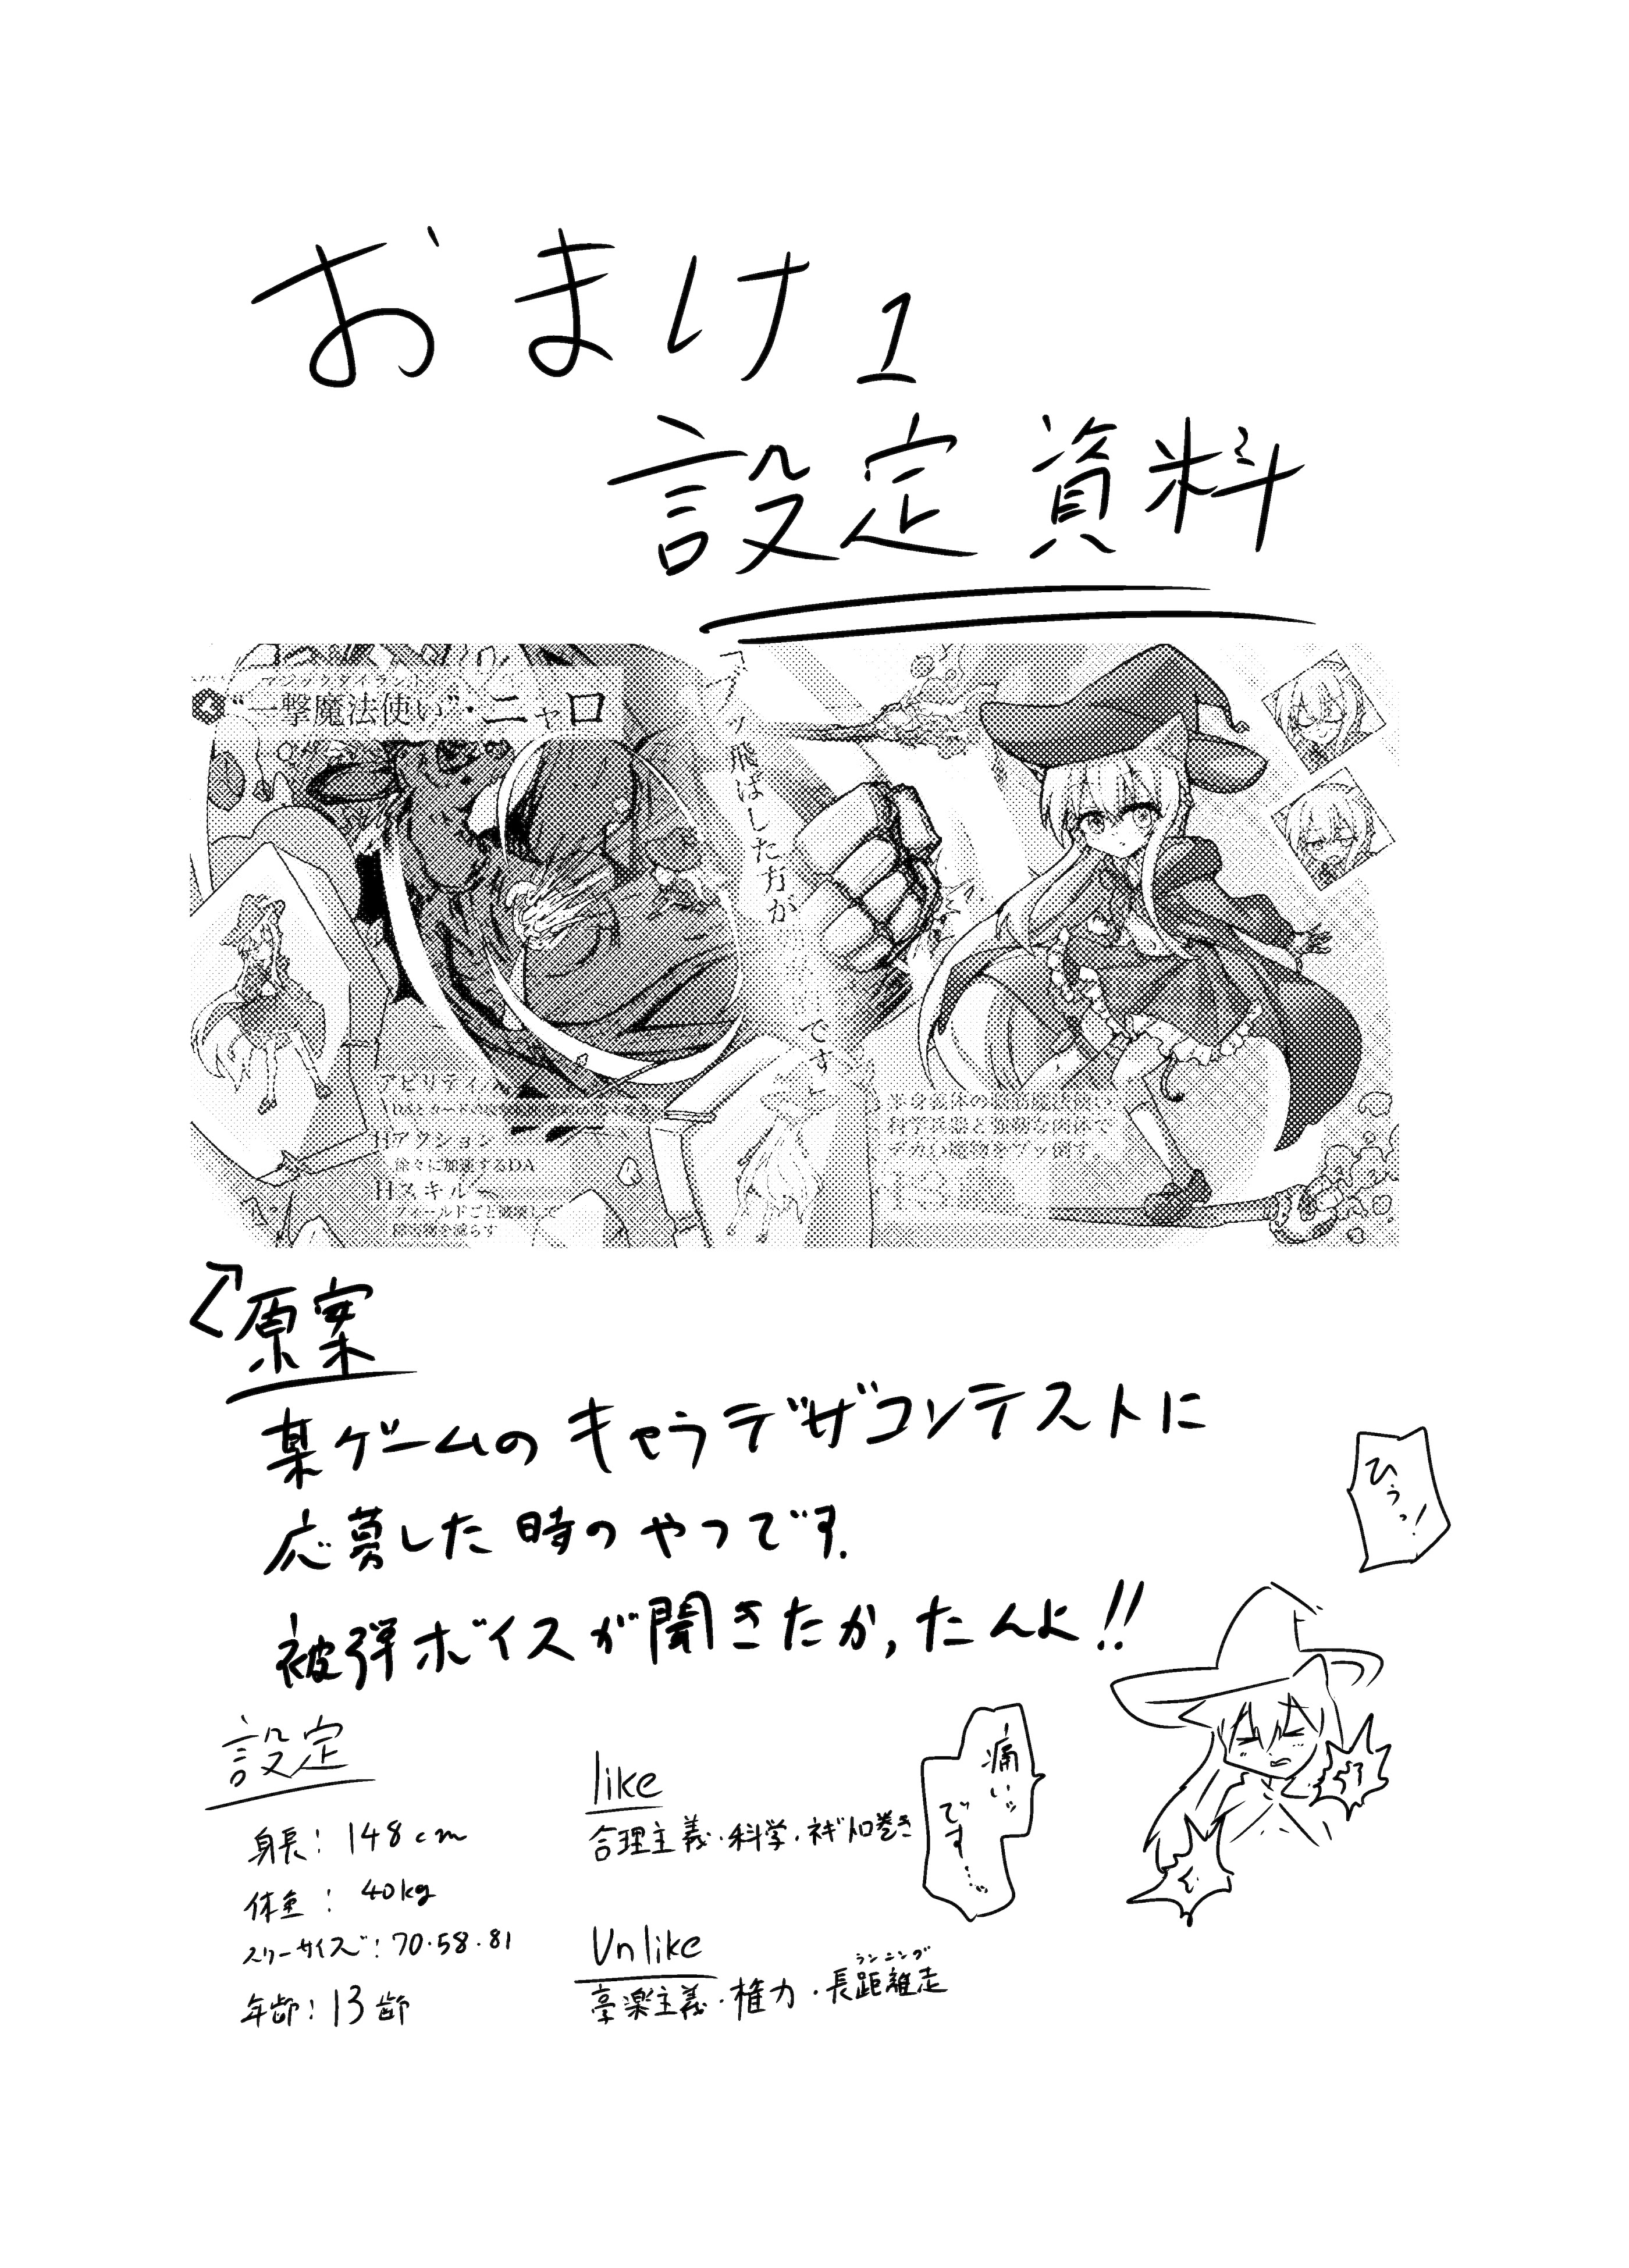 おまけ1
設定資料
マジックダイナマイト
"一撃魔法使い"・ニャロ
ブッ飛ばした方が
ですよ
アビリティ
Hアクション
徐々に加速するDA
Hスキル
フィールドごと破壊して
障害物を減らす
科学兵器と強靭な肉体で
デカい魔物をブッ倒す。
原案
某ゲームのキャラデザコンテストに
応募した時のやつです.
被弾ボイスが聞きたかったんよ!!
ひうっ!
痛いッ
です…
設定
身長: 148cm
体重: 40kg
スリーサイズ: 70・58・81
年齢: 13歳
like
合理主義・科学・ネギトロ巻き
Unlike
享楽主義・権力・長距離走
ランニング